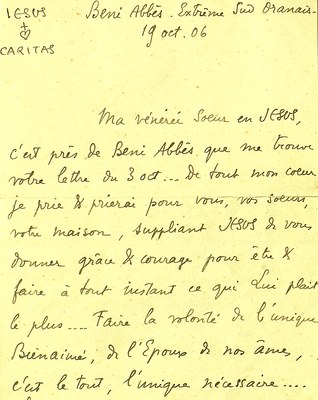 IESUS
CARITAS
Beni Abbès. Extrême Sud Oranais.
19 oct. 06
Ma vénérée Soeur en JESUS,
c'est près de Beni Abbès que me trouve
votre lettre du 3 oct... De tout mon coeur
je prie & prierai pour vous, vos soeurs,
votre maison, suppliant JESUS de vous
donner grâce & courage pour être &
faire à tout instant ce qui Lui plait
le plus.... Faire la volonté de l'unique
Bienaimé, de l'Epoux de nos âmes,
c'est le tout, l'unique nécessaire....